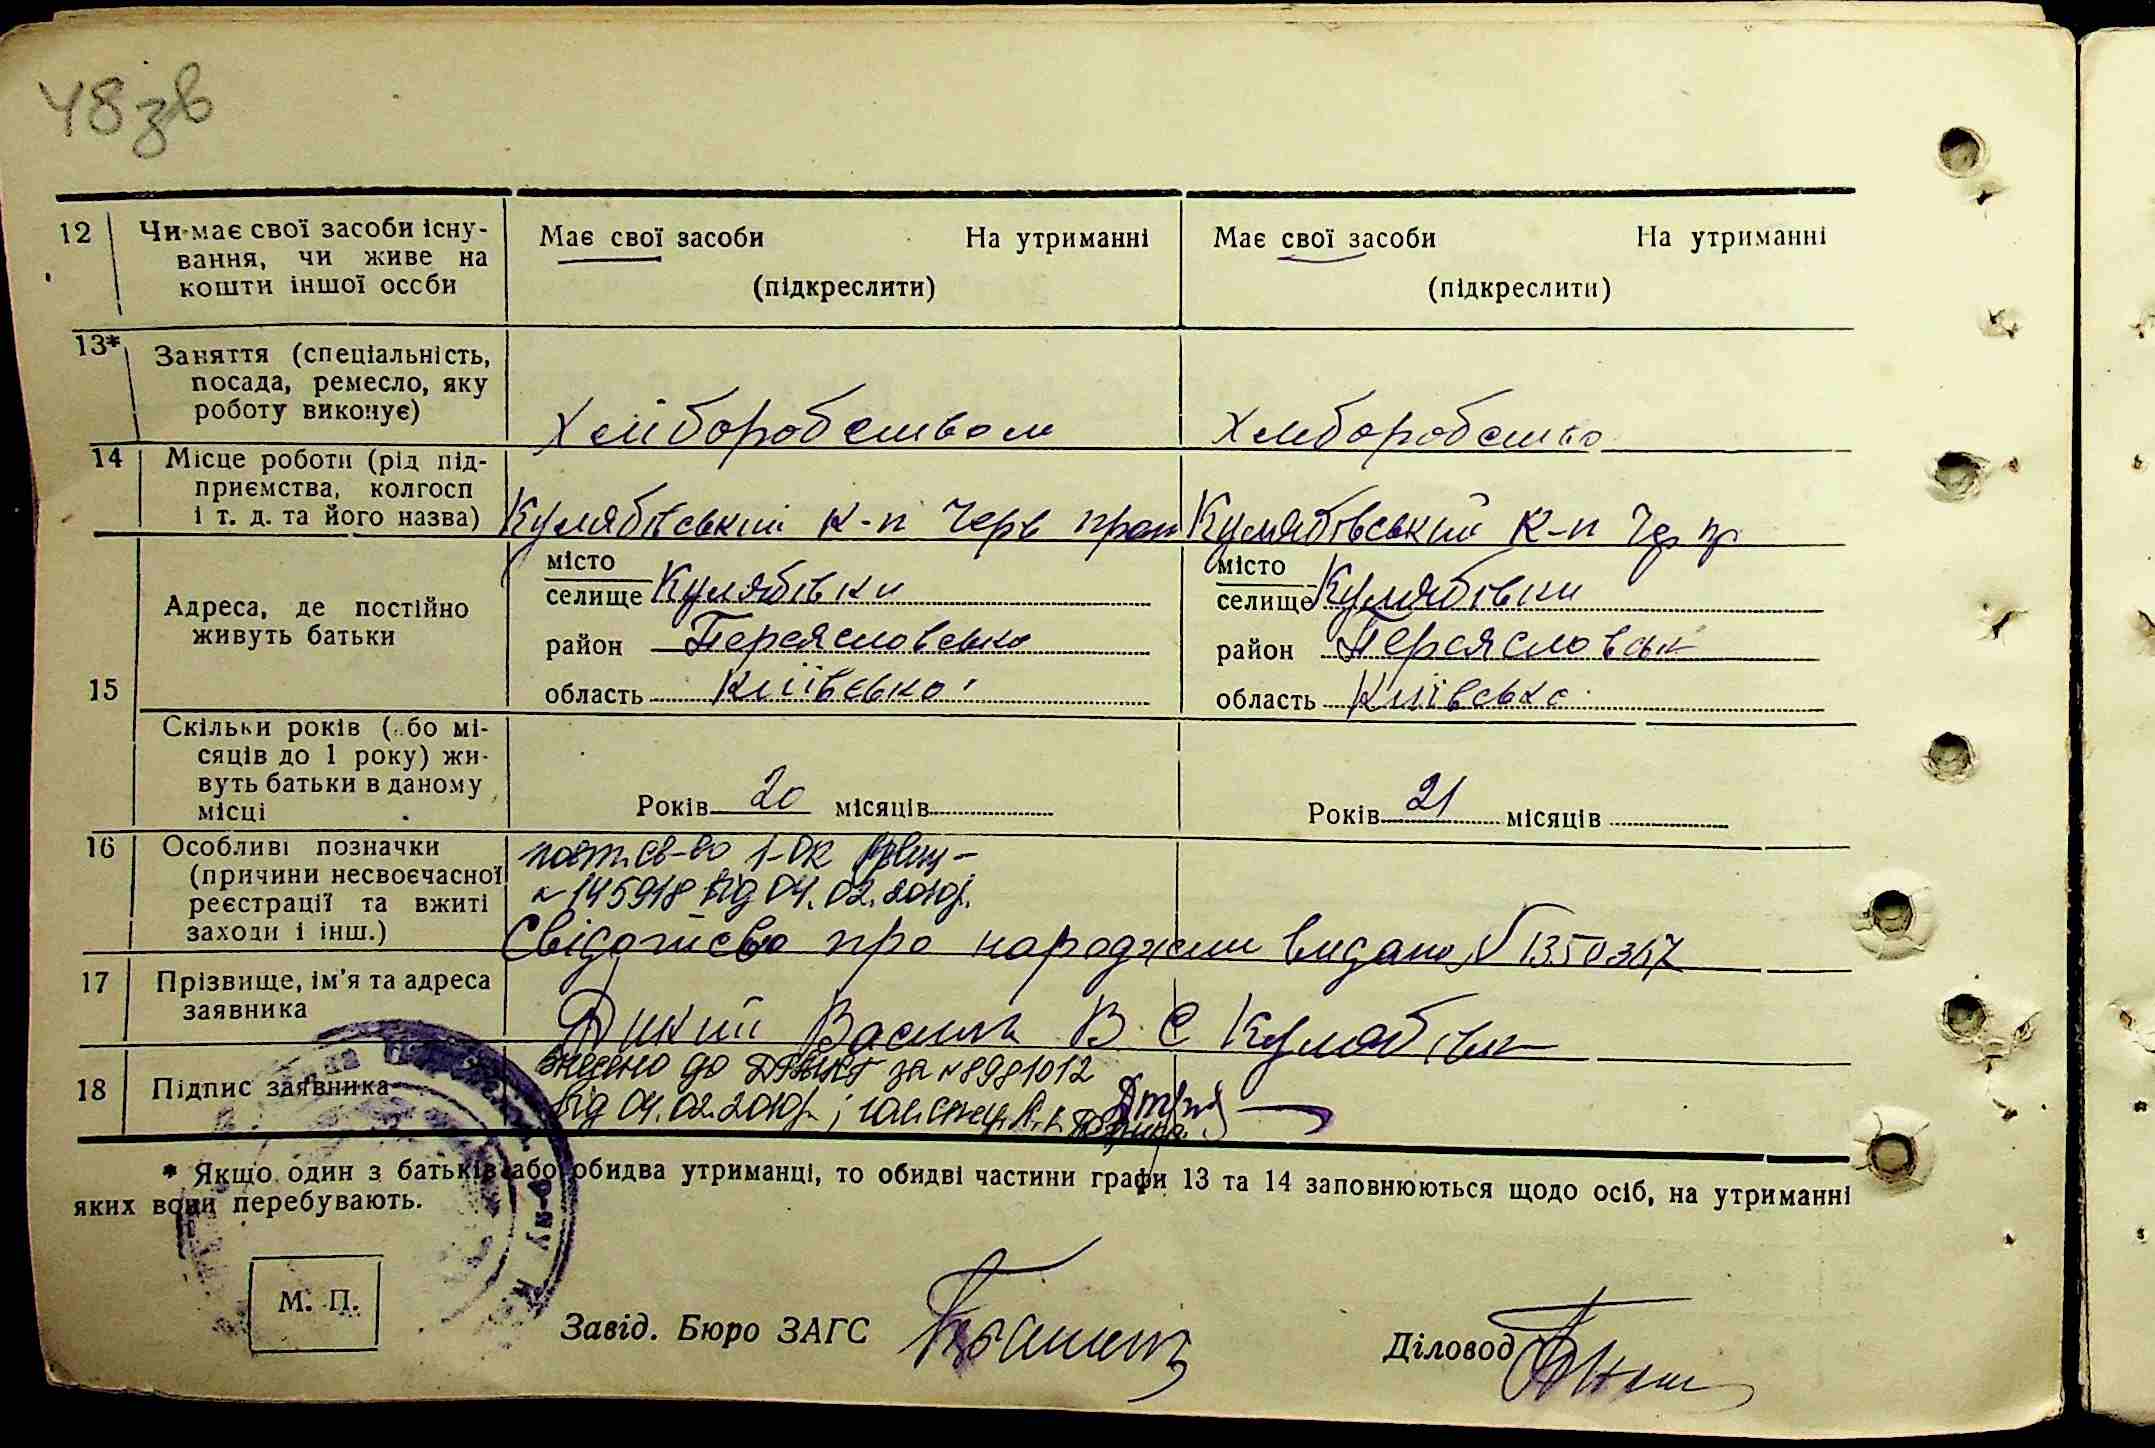 48 зв
12 Чи має свої засоби існу- Має свої засоби На утриманні Має свої засоби На утриманні
вання, чи живе на
кошти іншої особи (підкреслити) (підкреслити)
13* Заняття (спеціальність,
посада, ремесло, яку
роботу виконує) Хліборобством Хліборобство
14 Місце роботи (рід під-
приємства, колгосп
і т. д. та його назва) Кулябівський к-п Черв прап Кулябівський к-п Чер пр
місто місто
селище Кулябівки селище Кулябівки
15 Адреса, де постійно
живуть батьки
район Переясловсько район Переясловськ
область Київсько область Київське
Скільки років (або мі-
сяців до 1 року) жи-
вуть батьки в даному
місці Років 20 місяців Років 21 місяців
16 Особливі позначки
(причини несвоєчасної
реєстрації та вжиті
заходи і інш.)
повт. св-во 1-ОК
№ 145918 від 04.02.2010р.
Свідотство про народжени видано № 1350367
17 Прізвище, ім'я та адреса
заявника Дикий Василь В. С Кулябівк
18 Підпис заявника
внесено до за № 8981012
від 04.02.2010р.;
* Якщо один з батьків або обидва утриманці, то обидві частини графи 13 та 14 заповнюються щодо осіб, на утриманні
яких вони перебувають.
М. П.
Завід. Бюро ЗАГС Діловод